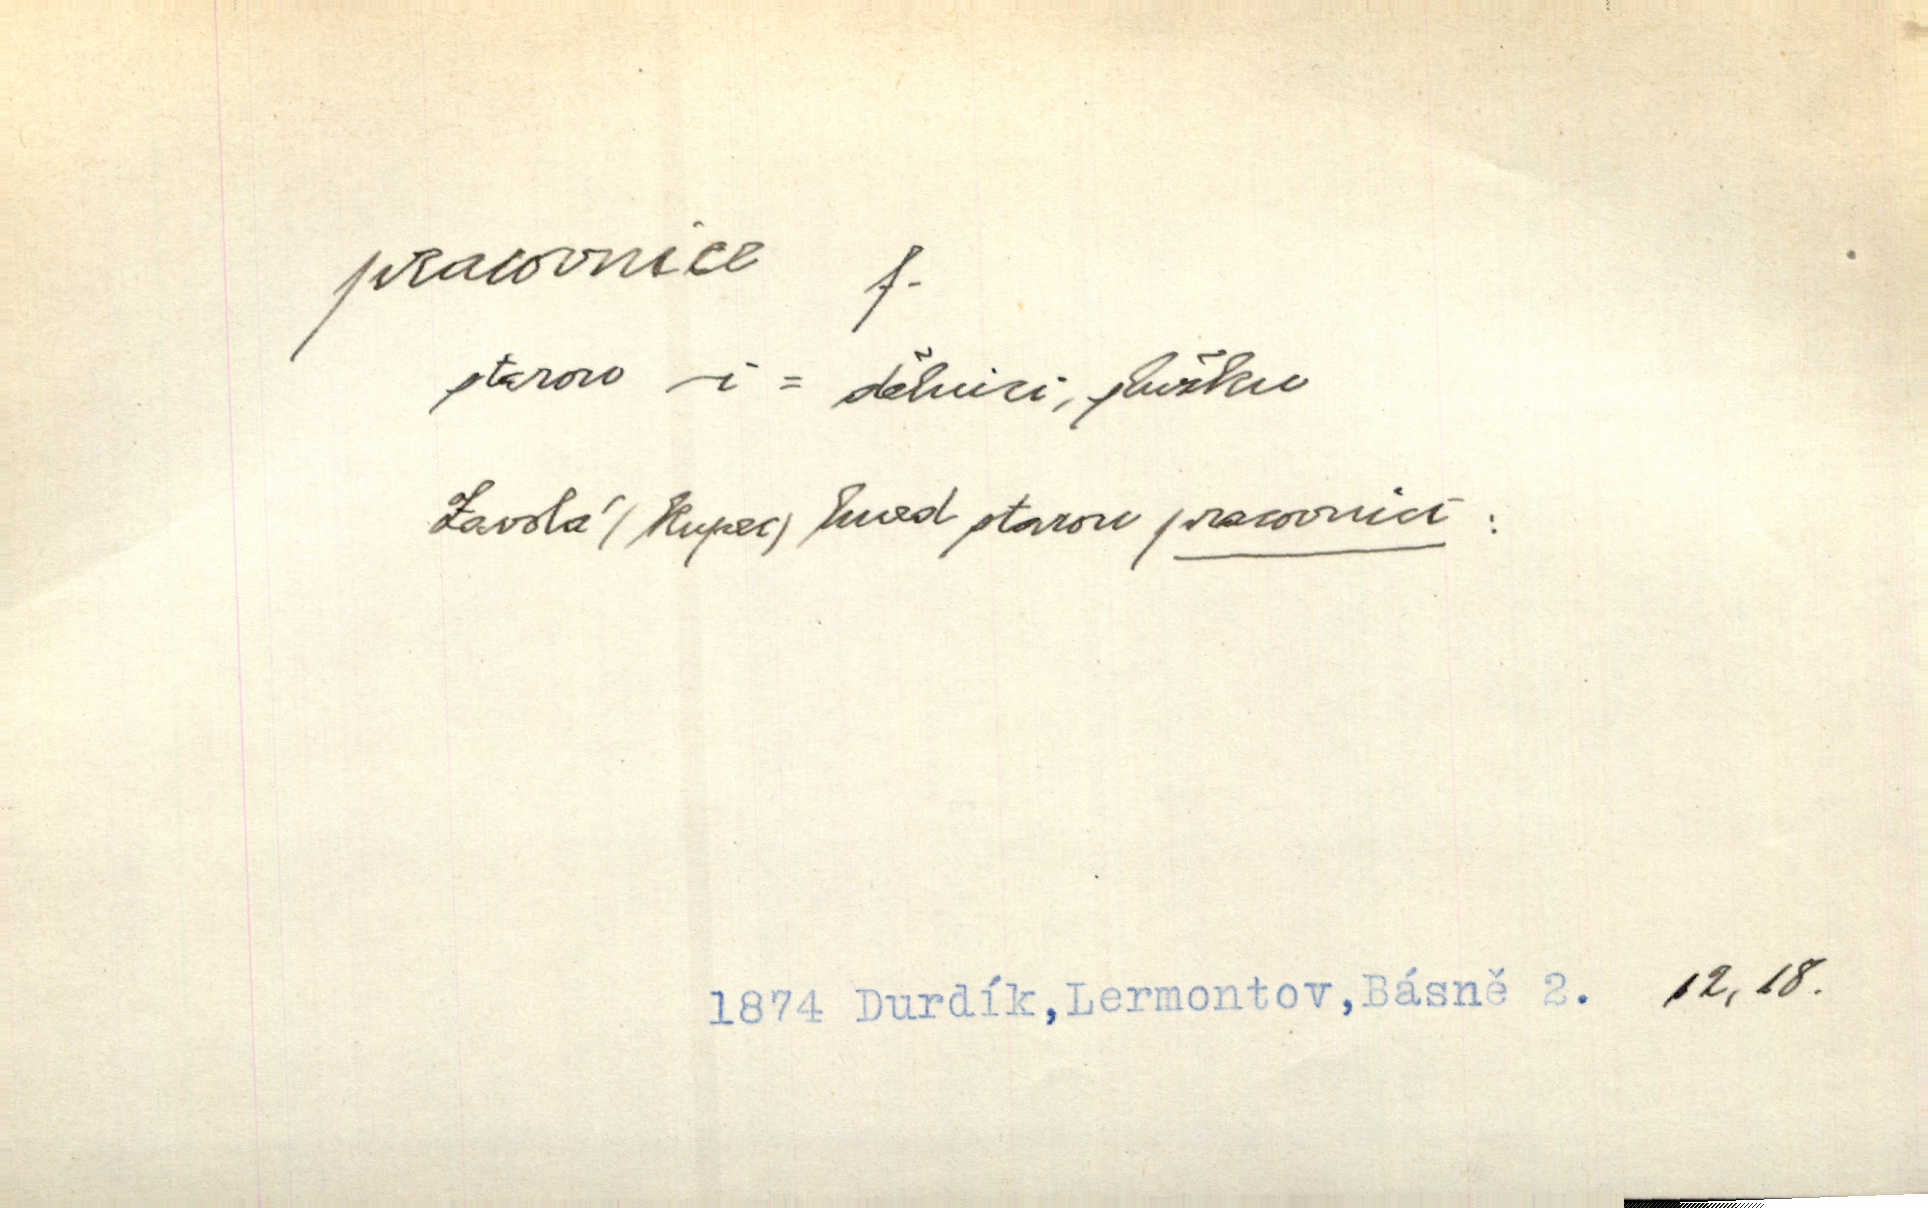 pracovnice f.
starou -i = dělnici, služku
Zavolá (kupec) hned starou pracovnici :
1874 Durdík,Lermontov,Básně 2. 12, 18.